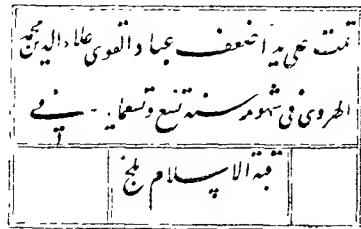 تمت علی ید اضعف عباد القوی علاء الدین محمد
الهروی فی شهور سنة تسع وتسعمایة فی
قبة الاسلام بلخ